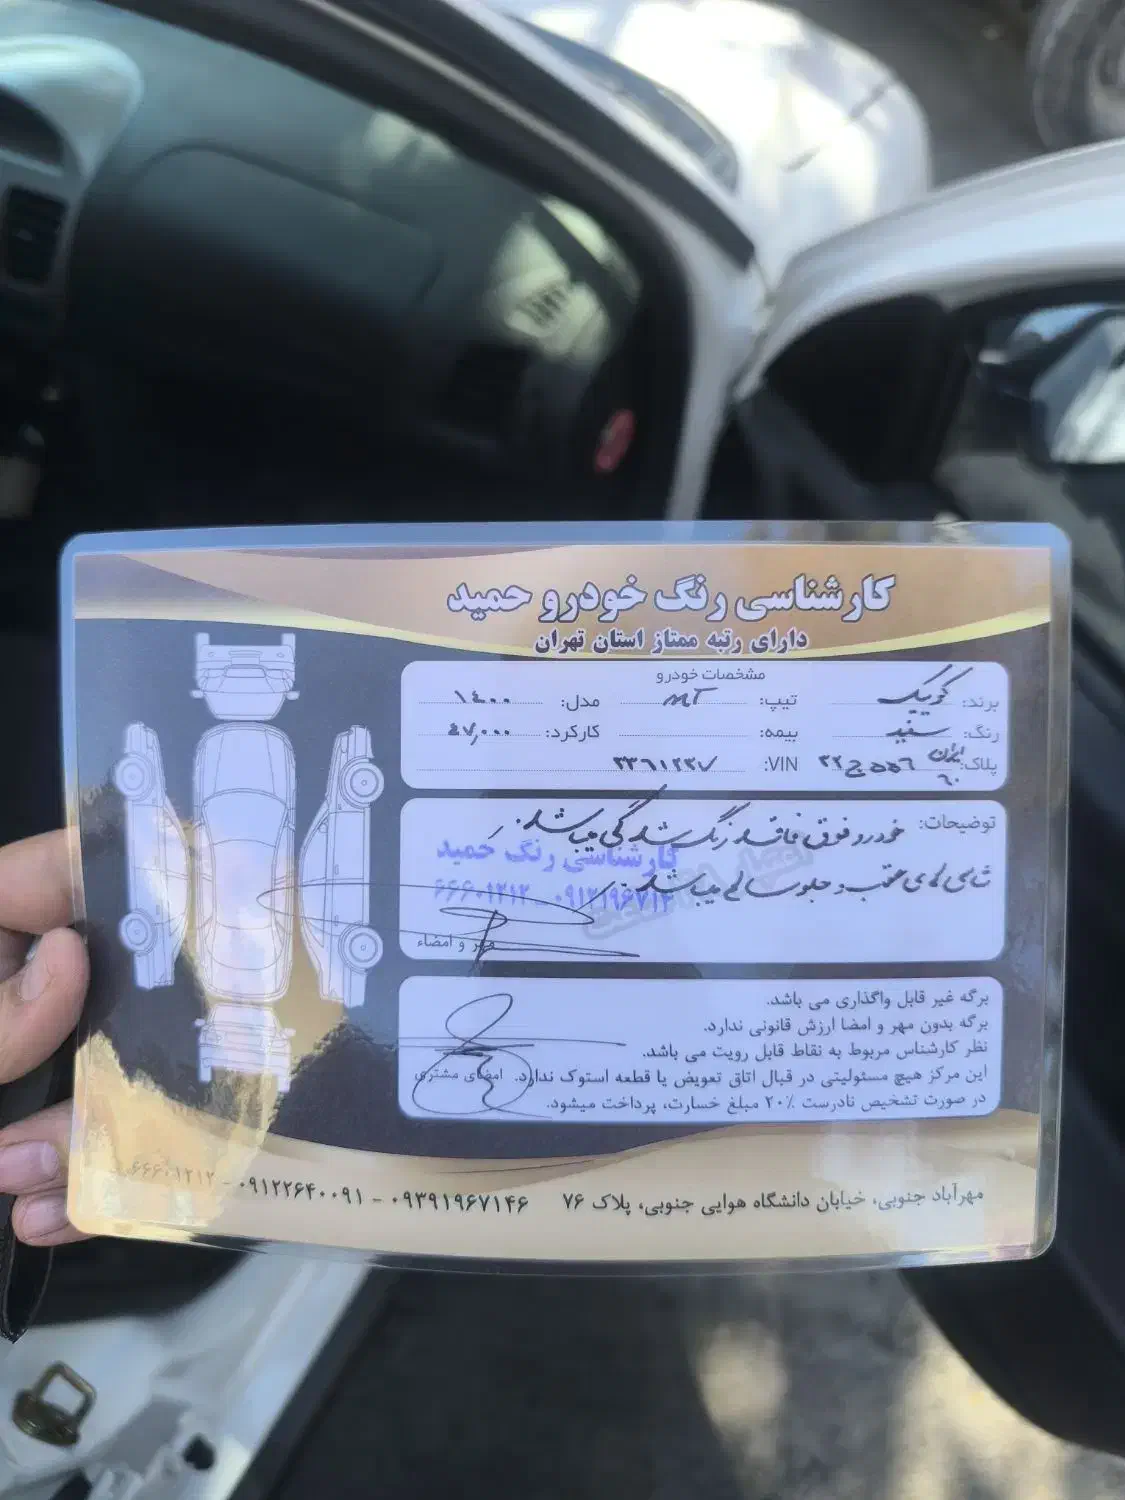 کارشناسی رنگ خودرو حمید
دارای رتبه ممتاز استان تهران
مشخصات خودرو
برند: کوییک تیپ: MT مدل: ۱۴۰۰
رنگ: سفید بیمه: کارکرد: ۴۷,۰۰۰
پلاک: ایران ۶۰ ۵۵۶ ج ۲۲ VIN: ۳۳۶۱۲۳۷
توضیحات: خودرو فوق فاقد رنگ شدگی میباشد.
شاسی های عقب و جلو سالم میباشد.
کارشناسی رنگ حمید
۰۹۱۲۱۹۶۷۱۴ - ۶۶۶۰۱۲۱۲
مهر و امضاء
برگه غیر قابل واگذاری می باشد.
برگه بدون مهر و امضا ارزش قانونی ندارد.
نظر کارشناس مربوط به نقاط قابل رویت می باشد.
این مرکز هیچ مسئولیتی در قبال اتاق تعویض یا قطعه استوک ندارد. امضای مشتری
در صورت تشخیص نادرست ۲۰٪ مبلغ خسارت، پرداخت میشود.
مهرآباد جنوبی، خیابان دانشگاه هوایی جنوبی، پلاک ۷۶ ۰۹۳۹۱۹۶۷۱۴۶ - ۰۹۱۲۲۶۴۰۰۹۱ - ۶۶۶۰۱۲۱۲